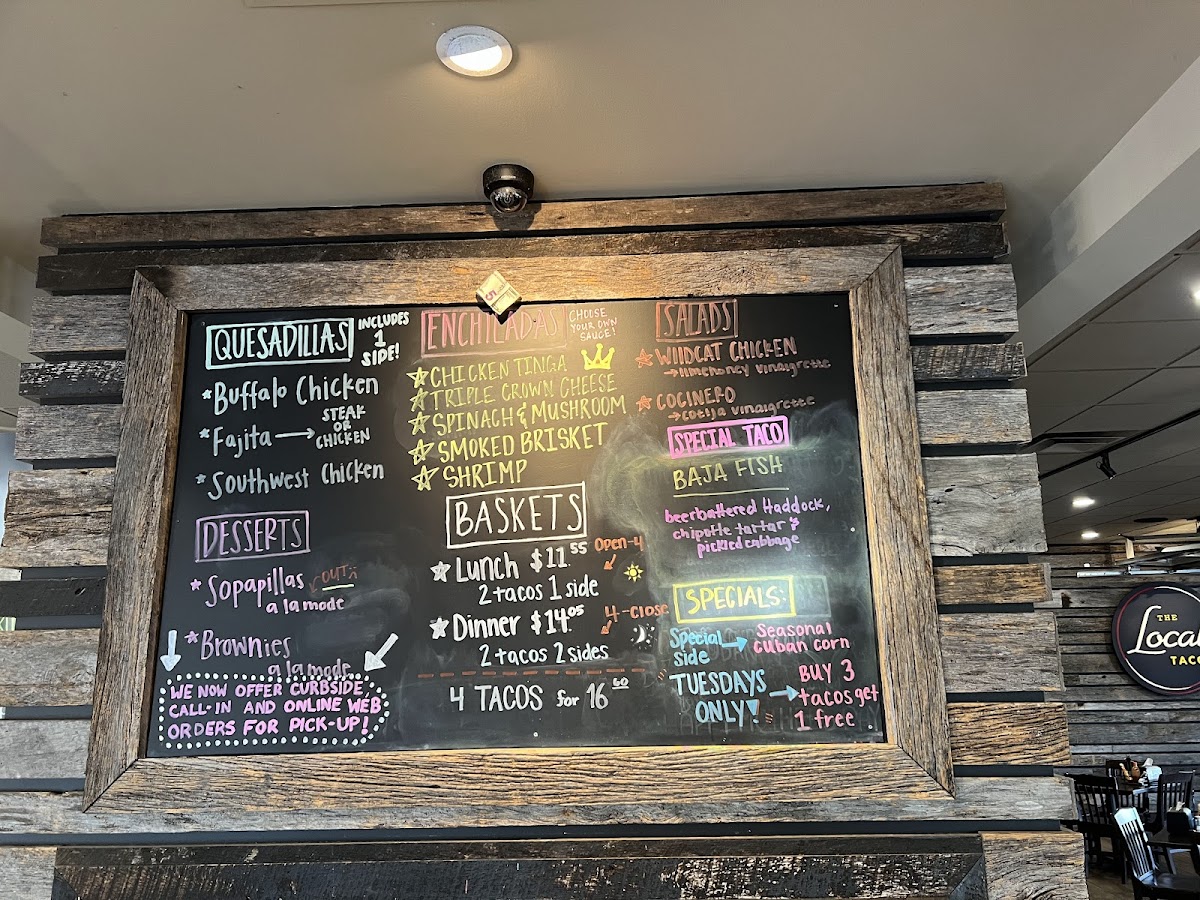 QUESADILLAS
INCLUDES
1
SIDE!
*Buffalo Chicken
*Fajita → STEAK
OR
CHICKEN
*Southwest Chicken
DESSERTS
*Sopapillas OUT
a la mode
*Brownies
a la mode
WE NOW OFFER CURBSIDE,
CALL-IN AND ONLINE WEB
ORDERS FOR PICK-UP!
ENCHILADAS
CHOOSE
YOUR OWN
SAUCE!
CHICKEN TINGA
TRIPLE CROWN CHEESE
SPINACH & MUSHROOM
SMOKED BRISKET
SHRIMP
BASKETS
Lunch $11.55 Open-4
2 tacos 1 side
Dinner $14.05 4-close
2 tacos 2 sides
4 TACOS for 16.60
SALADS
WILDCAT CHICKEN
→limehoney vinaigrette
COCINERO
→cotija vinaigrette
SPECIAL TACO
BAJA FISH
beerbattered Haddock,
chipotle tartar &
pickled cabbage
SPECIALS:
Special
side
→ Seasonal
cuban corn
TUESDAYS
ONLY!
→ BUY 3
tacos get
1 free
THE
Local
TACO